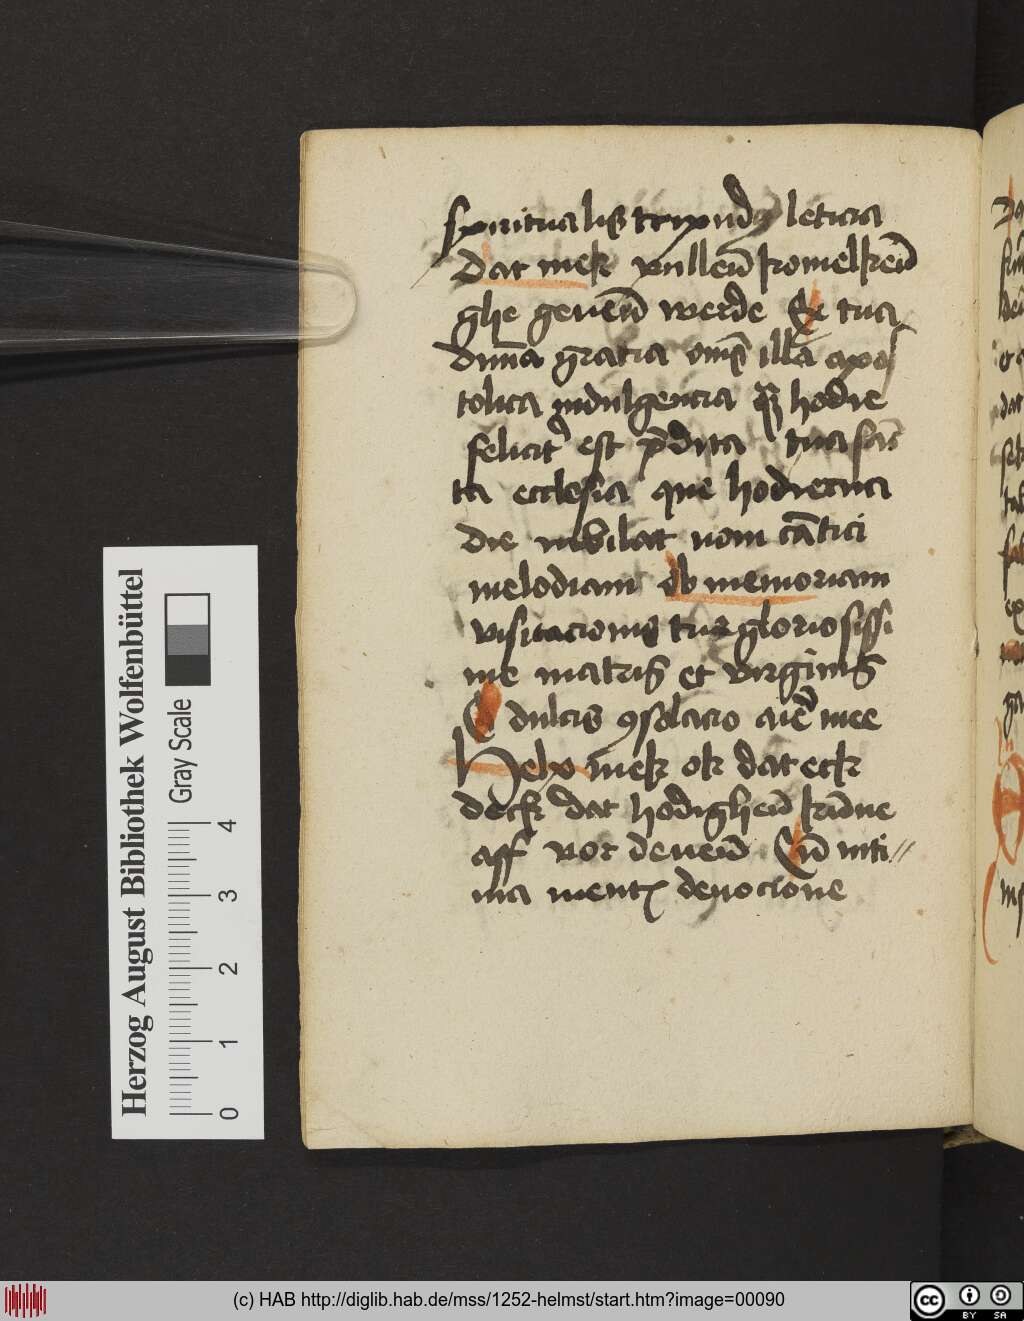 spiritualis tripudy leticia
dat mek vulleū komelkeīd
ghe geuēn werde Ex tua
diuīa gratia oīnis illa apos
tolica indulgencia q̄ hodie
felicit̾ est p̄dita tua sāc
ta ecclesia que hodierna
die iubilat noui cātici
melodiam ob memoriam
visitacionis tue gloriosissi
me matris et virginis
O dulcis ꝯsolacio aīe mee
Help mek ok dat eck
deck dat hodigheū kūne
aff vor deneīd Cū inti //
ma mentꝭ deuocione
Herzog August Bibliothek Wolfenbüttel
Gray Scale
0 1 2 3 4
(c) HAB http://diglib.hab.de/mss/1252-helmst/start.htm?image=00090
cc BY SA